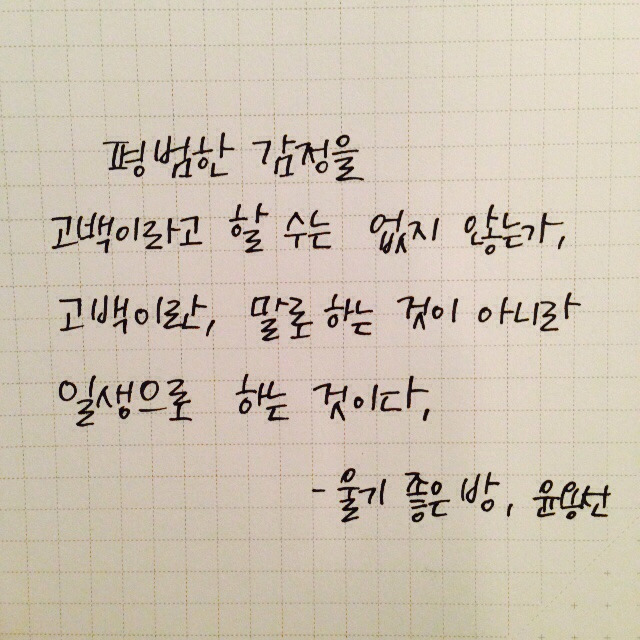 평범한 감정을
고백이라고 할 수는 없지 않는가,
고백이란, 말로 하는 것이 아니라
일생으로 하는 것이다,
- 울기 좋은 방, 윤용선